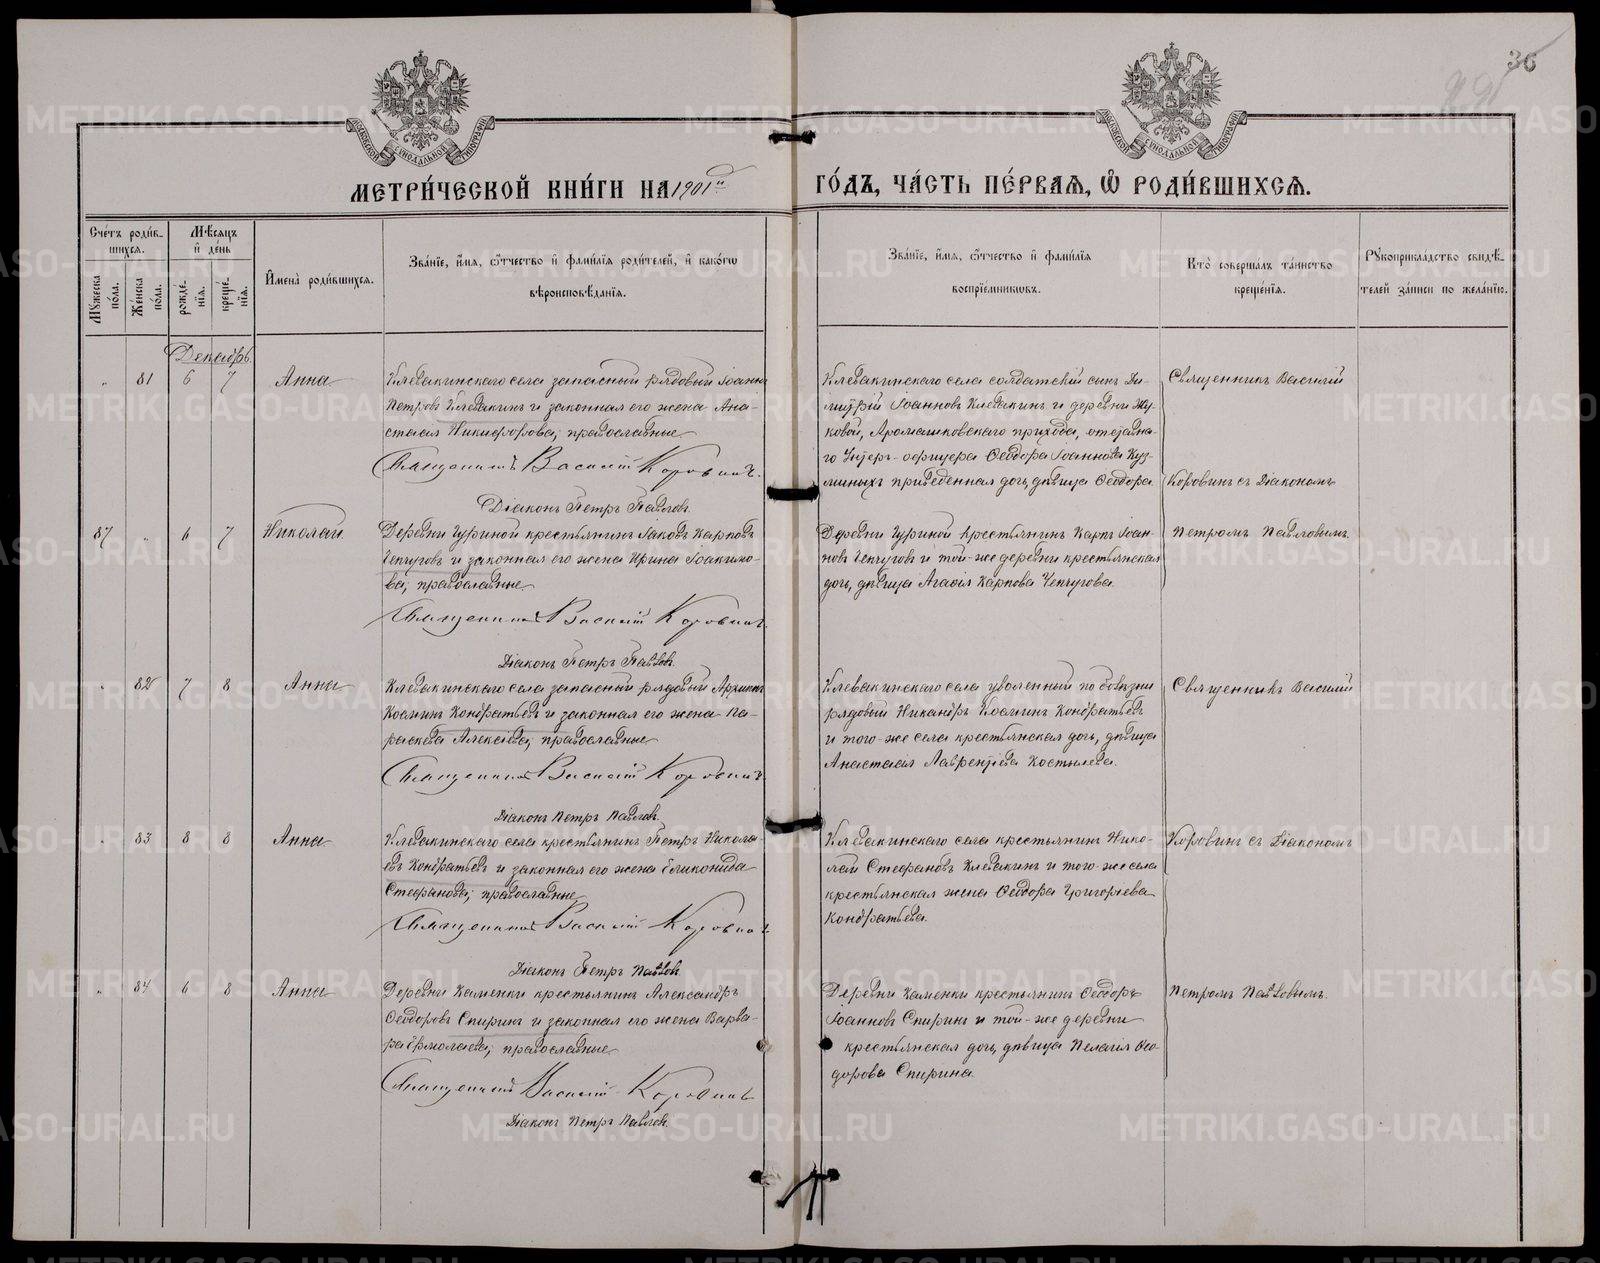 36
МОСКОВСКОЙ СѴНОДАЛЬНОЙ ТИПОГРАФІИ
МОСКОВСКОЙ СѴНОДАЛЬНОЙ ТИПОГРАФІИ
МЕТРИ́ЧЕСКОЙ КНИ́ГИ НА 1901й ГО́ДЪ, ЧА́СТЬ ПЕ́РВАѦ, Ѿ РОДИ́ВШИХСѦ.
Сче́тъ роди́в-
шихсѧ.
Мꙋ́жеска по́ла.
Же́нска по́ла.
Мѣ́сѧцъ
и҆ де́нь
рожде́-
нїѧ.
креще́-
нїѧ.
И҆мена̀ роди́вшихсѧ.
Зва́нїе, и҆́мѧ, ѻ҆́тчество и҆ фами́лїѧ роди́телей, и҆ како́гѡ
вѣроисповѣ́данїѧ.
Зва́нїе, и҆́мѧ, ѻ҆́тчество и҆ фами́лїѧ
воспрїе́мникѡвъ.
Кто̀ соверша́лъ та́инство
креще́нїѧ.
Рꙋкоприкла́дство свидѣ́-
телей за́писи по жела́нїю.
Декабрь.
" 81 6 7 Анна
Клевакинскаго села запасный рядовый Іоаннъ
Петровъ Клевакинъ и законная его жена Ана-
стасія Никифорова; православные
Священникъ Василій Коровинъ.
Діаконъ Петръ Павловъ.
Клевакинскаго села солдатскій сынъ Ди-
митрій Іоанновъ Клевакинъ и деревни Жу-
ковой, Арамашковскаго прихода, отставна-
го Унтеръ-офицера Ѳеодора Іоаннова Куз-
миныхъ приведенная дочь, дѣвица Ѳеодора.
Священникъ Василій
Коровинъ съ Діакономъ
87 " 6 7 Николай
Деревни Гуриной крестьянинъ Іаковъ Карповъ
Чепчуговъ и законная его жена Ирина Іоакимо-
ва; православные
Священникъ Василій Коровинъ.
Діаконъ Петръ Павловъ.
Деревни Гуриной крестьянинъ Карпъ Іоан-
новъ Чепчуговъ и той-же деревни крестьянская
дочь, дѣвица Агафія Карпова Чепчугова.
Петромъ Павловымъ.
" 82 7 8 Анна
Клевакинскаго села запасный рядовый Архипъ
Косминъ Кондратьевъ и законная его жена Па-
раскева Алексіева; православные
Священникъ Василій Коровинъ.
Діаконъ Петръ Павловъ.
Клевакинскаго села уволенный по болѣзни
рядовый Никандръ Косминъ Кондратьевъ
и того-же села крестьянская дочь, дѣвица
Анастасія Лаврентіева Костылева.
Священникъ Василій
" 83 8 8 Анна
Клевакинскаго села крестьянинъ Петръ Никола-
евъ Кондратьевъ и законная его жена Гликонида
Стефанова; православные
Священникъ Василій Коровинъ.
Діаконъ Петръ Павловъ
Клевакинскаго села крестьянинъ Нико-
лай Стефановъ Клевакинъ и того-же села
крестьянская жена Ѳеодора Григоріева
Кондратьева.
Коровинъ съ Діакономъ
" 84 6 8 Анна
Деревни Каменки крестьянинъ Александръ
Ѳеодоровъ Спиринъ и законная его жена Варва-
ра Ермолаева; православные
Священникъ Василій Коровинъ
Діаконъ Петръ Павловъ.
Деревни Каменки крестьянинъ Ѳеодоръ
Іоанновъ Спиринъ и той-же деревни
крестьянская дочь, дѣвица Пелагія Ѳео-
дорова Спирина.
Петромъ Павловымъ.
METRIKI.GASO-URAL.RU